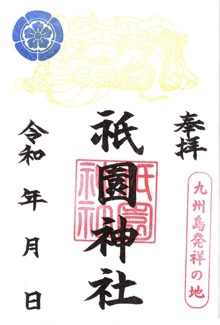 奉拝
九州島発祥の地
祇園神社
祇園神社
令和 年 月 日